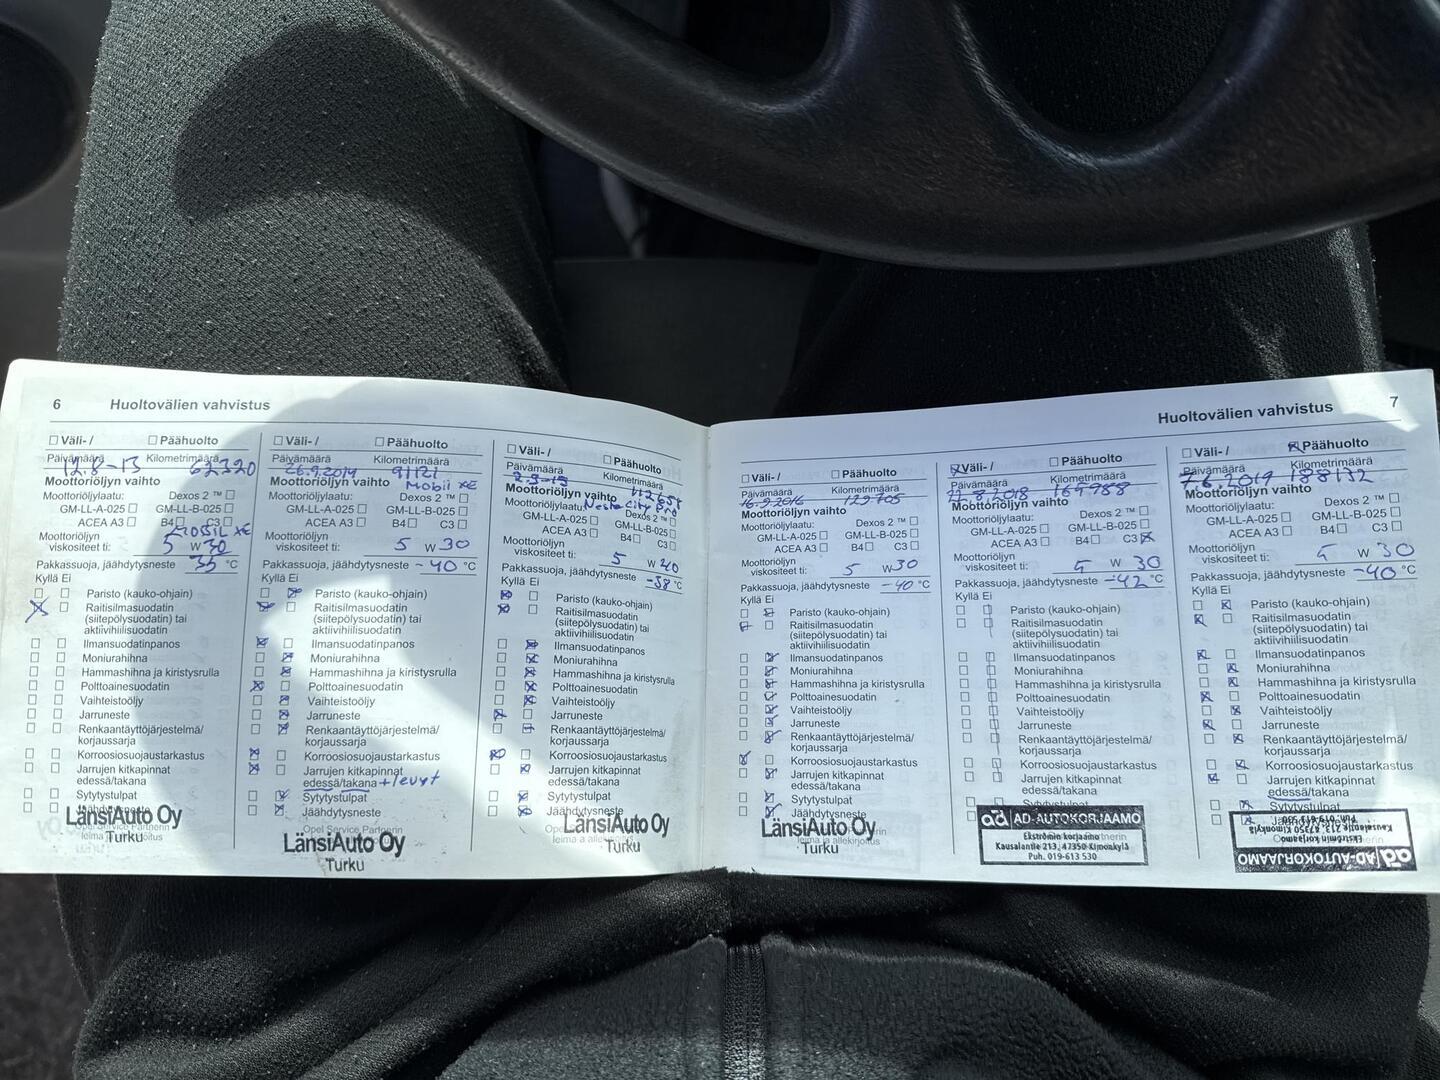 6 Huoltovälien vahvistus
☐ Väli- / ☐ Päähuolto
Päivämäärä Kilometrimäärä
12.8-13 62320
Moottoriöljyn vaihto
Moottoriöljylaatu: Dexos 2 ™ ☐
GM-LL-A-025 ☐ GM-LL-B-025 ☐
ACEA A3 ☐ B4 ☐ C3 ☐
Moottoriöljyn
viskositeetti: 5 W 30
Pakkassuoja, jäähdytysneste 35 °C
Kyllä Ei
Paristo (kauko-ohjain)
Raitisilmasuodatin
(siitepölysuodatin) tai
aktiivihiilisuodatin
Ilmansuodatinpanos
Moniurahihna
Hammashihna ja kiristysrulla
Polttoainesuodatin
Vaihteistoöljy
Jarruneste
Renkaantäyttöjärjestelmä/
korjaussarja
Korroosiosuojaustarkastus
Jarrujen kitkapinnat
edessä/takana
Sytytystulpat
Jäähdytysneste
LänsiAuto Oy
Turku
☐ Väli- / ☐ Päähuolto
Päivämäärä Kilometrimäärä
26.9.2014 91121
Moottoriöljyn vaihto
Moottoriöljylaatu: Dexos 2 ™ ☐
GM-LL-A-025 ☐ GM-LL-B-025 ☐
ACEA A3 ☐ B4 ☐ C3 ☐
Moottoriöljyn
viskositeetti: 5 W 30
Pakkassuoja, jäähdytysneste -40 °C
Kyllä Ei
Paristo (kauko-ohjain)
Raitisilmasuodatin
(siitepölysuodatin) tai
aktiivihiilisuodatin
Ilmansuodatinpanos
Moniurahihna
Hammashihna ja kiristysrulla
Polttoainesuodatin
Vaihteistoöljy
Jarruneste
Renkaantäyttöjärjestelmä/
korjaussarja
Korroosiosuojaustarkastus
Jarrujen kitkapinnat
edessä/takana +levyt
Sytytystulpat
Jäähdytysneste
Opel Service Partnerin
LänsiAuto Oy
Turku
☐ Väli- / ☐ Päähuolto
Päivämäärä Kilometrimäärä
2.9-15 112654
Moottoriöljyn vaihto Neste City Pro
Moottoriöljylaatu: Dexos 2 ™ ☐
GM-LL-A-025 ☐ GM-LL-B-025 ☐
ACEA A3 ☐ B4 ☐ C3 ☐
Moottoriöljyn
viskositeetti: 5 W 40
Pakkassuoja, jäähdytysneste -38 °C
Kyllä Ei
Paristo (kauko-ohjain)
Raitisilmasuodatin
(siitepölysuodatin) tai
aktiivihiilisuodatin
Ilmansuodatinpanos
Moniurahihna
Hammashihna ja kiristysrulla
Polttoainesuodatin
Vaihteistoöljy
Jarruneste
Renkaantäyttöjärjestelmä/
korjaussarja
Korroosiosuojaustarkastus
Jarrujen kitkapinnat
edessä/takana
Sytytystulpat
Jäähdytysneste
LänsiAuto Oy
Turku
Huoltovälien vahvistus 7
☐ Väli- / ☐ Päähuolto
Päivämäärä Kilometrimäärä
16.9.2016 129705
Moottoriöljyn vaihto
Moottoriöljylaatu: Dexos 2 ™ ☐
GM-LL-A-025 ☐ GM-LL-B-025 ☐
ACEA A3 ☐ B4 ☐ C3 ☐
Moottoriöljyn
viskositeetti: 5 W 30
Pakkassuoja, jäähdytysneste -40 °C
Kyllä Ei
Paristo (kauko-ohjain)
Raitisilmasuodatin
(siitepölysuodatin) tai
aktiivihiilisuodatin
Ilmansuodatinpanos
Moniurahihna
Hammashihna ja kiristysrulla
Polttoainesuodatin
Vaihteistoöljy
Jarruneste
Renkaantäyttöjärjestelmä/
korjaussarja
Korroosiosuojaustarkastus
Jarrujen kitkapinnat
edessä/takana
Sytytystulpat
Jäähdytysneste
LänsiAuto Oy
Turku
☒ Väli- / ☐ Päähuolto
Päivämäärä Kilometrimäärä
22.8.2018 169788
Moottoriöljyn vaihto
Moottoriöljylaatu: Dexos 2 ™ ☐
GM-LL-A-025 ☐ GM-LL-B-025 ☐
ACEA A3 ☐ B4 ☐ C3 ☒
Moottoriöljyn
viskositeetti: 5 W 30
Pakkassuoja, jäähdytysneste -42 °C
Kyllä Ei
Paristo (kauko-ohjain)
Raitisilmasuodatin
(siitepölysuodatin) tai
aktiivihiilisuodatin
Ilmansuodatinpanos
Moniurahihna
Hammashihna ja kiristysrulla
Polttoainesuodatin
Vaihteistoöljy
Jarruneste
Renkaantäyttöjärjestelmä/
korjaussarja
Korroosiosuojaustarkastus
Jarrujen kitkapinnat
edessä/takana
Sytytystulpat
ad AD-AUTOKORJAAMO
Ekströmin korjaamo
Kausalantie 213, 47350 Kimonkylä
Puh. 019-613 530
☐ Väli- / ☒ Päähuolto
Päivämäärä Kilometrimäärä
7.6.2019 188132
Moottoriöljyn vaihto
Moottoriöljylaatu: Dexos 2 ™ ☐
GM-LL-A-025 ☐ GM-LL-B-025 ☐
ACEA A3 ☐ B4 ☐ C3 ☐
Moottoriöljyn
viskositeetti: 5 W 30
Pakkassuoja, jäähdytysneste -40 °C
Kyllä Ei
Paristo (kauko-ohjain)
Raitisilmasuodatin
(siitepölysuodatin) tai
aktiivihiilisuodatin
Ilmansuodatinpanos
Moniurahihna
Hammashihna ja kiristysrulla
Polttoainesuodatin
Vaihteistoöljy
Jarruneste
Renkaantäyttöjärjestelmä/
korjaussarja
Korroosiosuojaustarkastus
Jarrujen kitkapinnat
edessä/takana
Sytytystulpat
ad AD-AUTOKORJAAMO
Ekströmin korjaamo
Kausalantie 213, 47350 Kimonkylä
Puh. 019-613 530